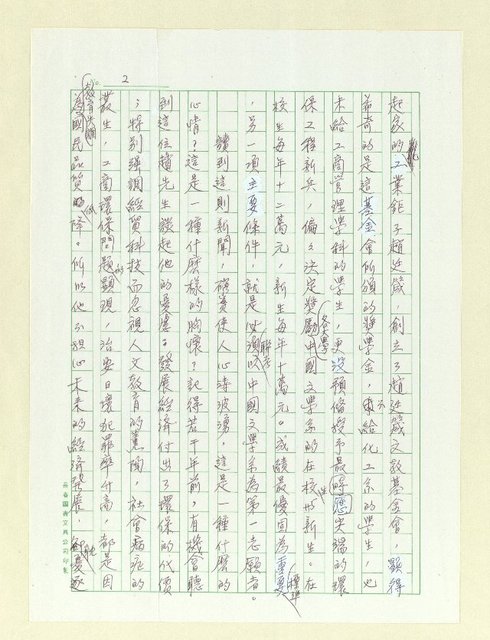 2
起家的工業鉅子趙廷箴，創立了趙廷箴文教基金會，顯得
新奇的是這基金會所頒的獎學金，不給化工系的學生，也
未給工商管理學科的學生，更沒預備授予最時應尖端的環
保工程新兵，偏偏決定獎勵各大學中國文學系的在校生和新生。在
校生每年十二萬元，新生每年十萬元。成績最優固為重要標準
，另一項主要條件，就是必須以聯考中國文學系為第一志願者。
讀到這則新聞，確實使人心濤波湧，這是一種什麼的
心情？這是一種什麼樣的胸懷？記得若干年前，有機會聽
到這位趙先生談起他的憂慮。發展經濟付出了環保的代價
；特別強調經貿科技而忽視人文教育的萬面，社會病症的
叢生，工商環保問題的顯現，治安日壞犯罪率升高，都是因
教育失調為國民品質的低降。所以他不擔心未來的經濟發展，
長春圖書文具公司印製